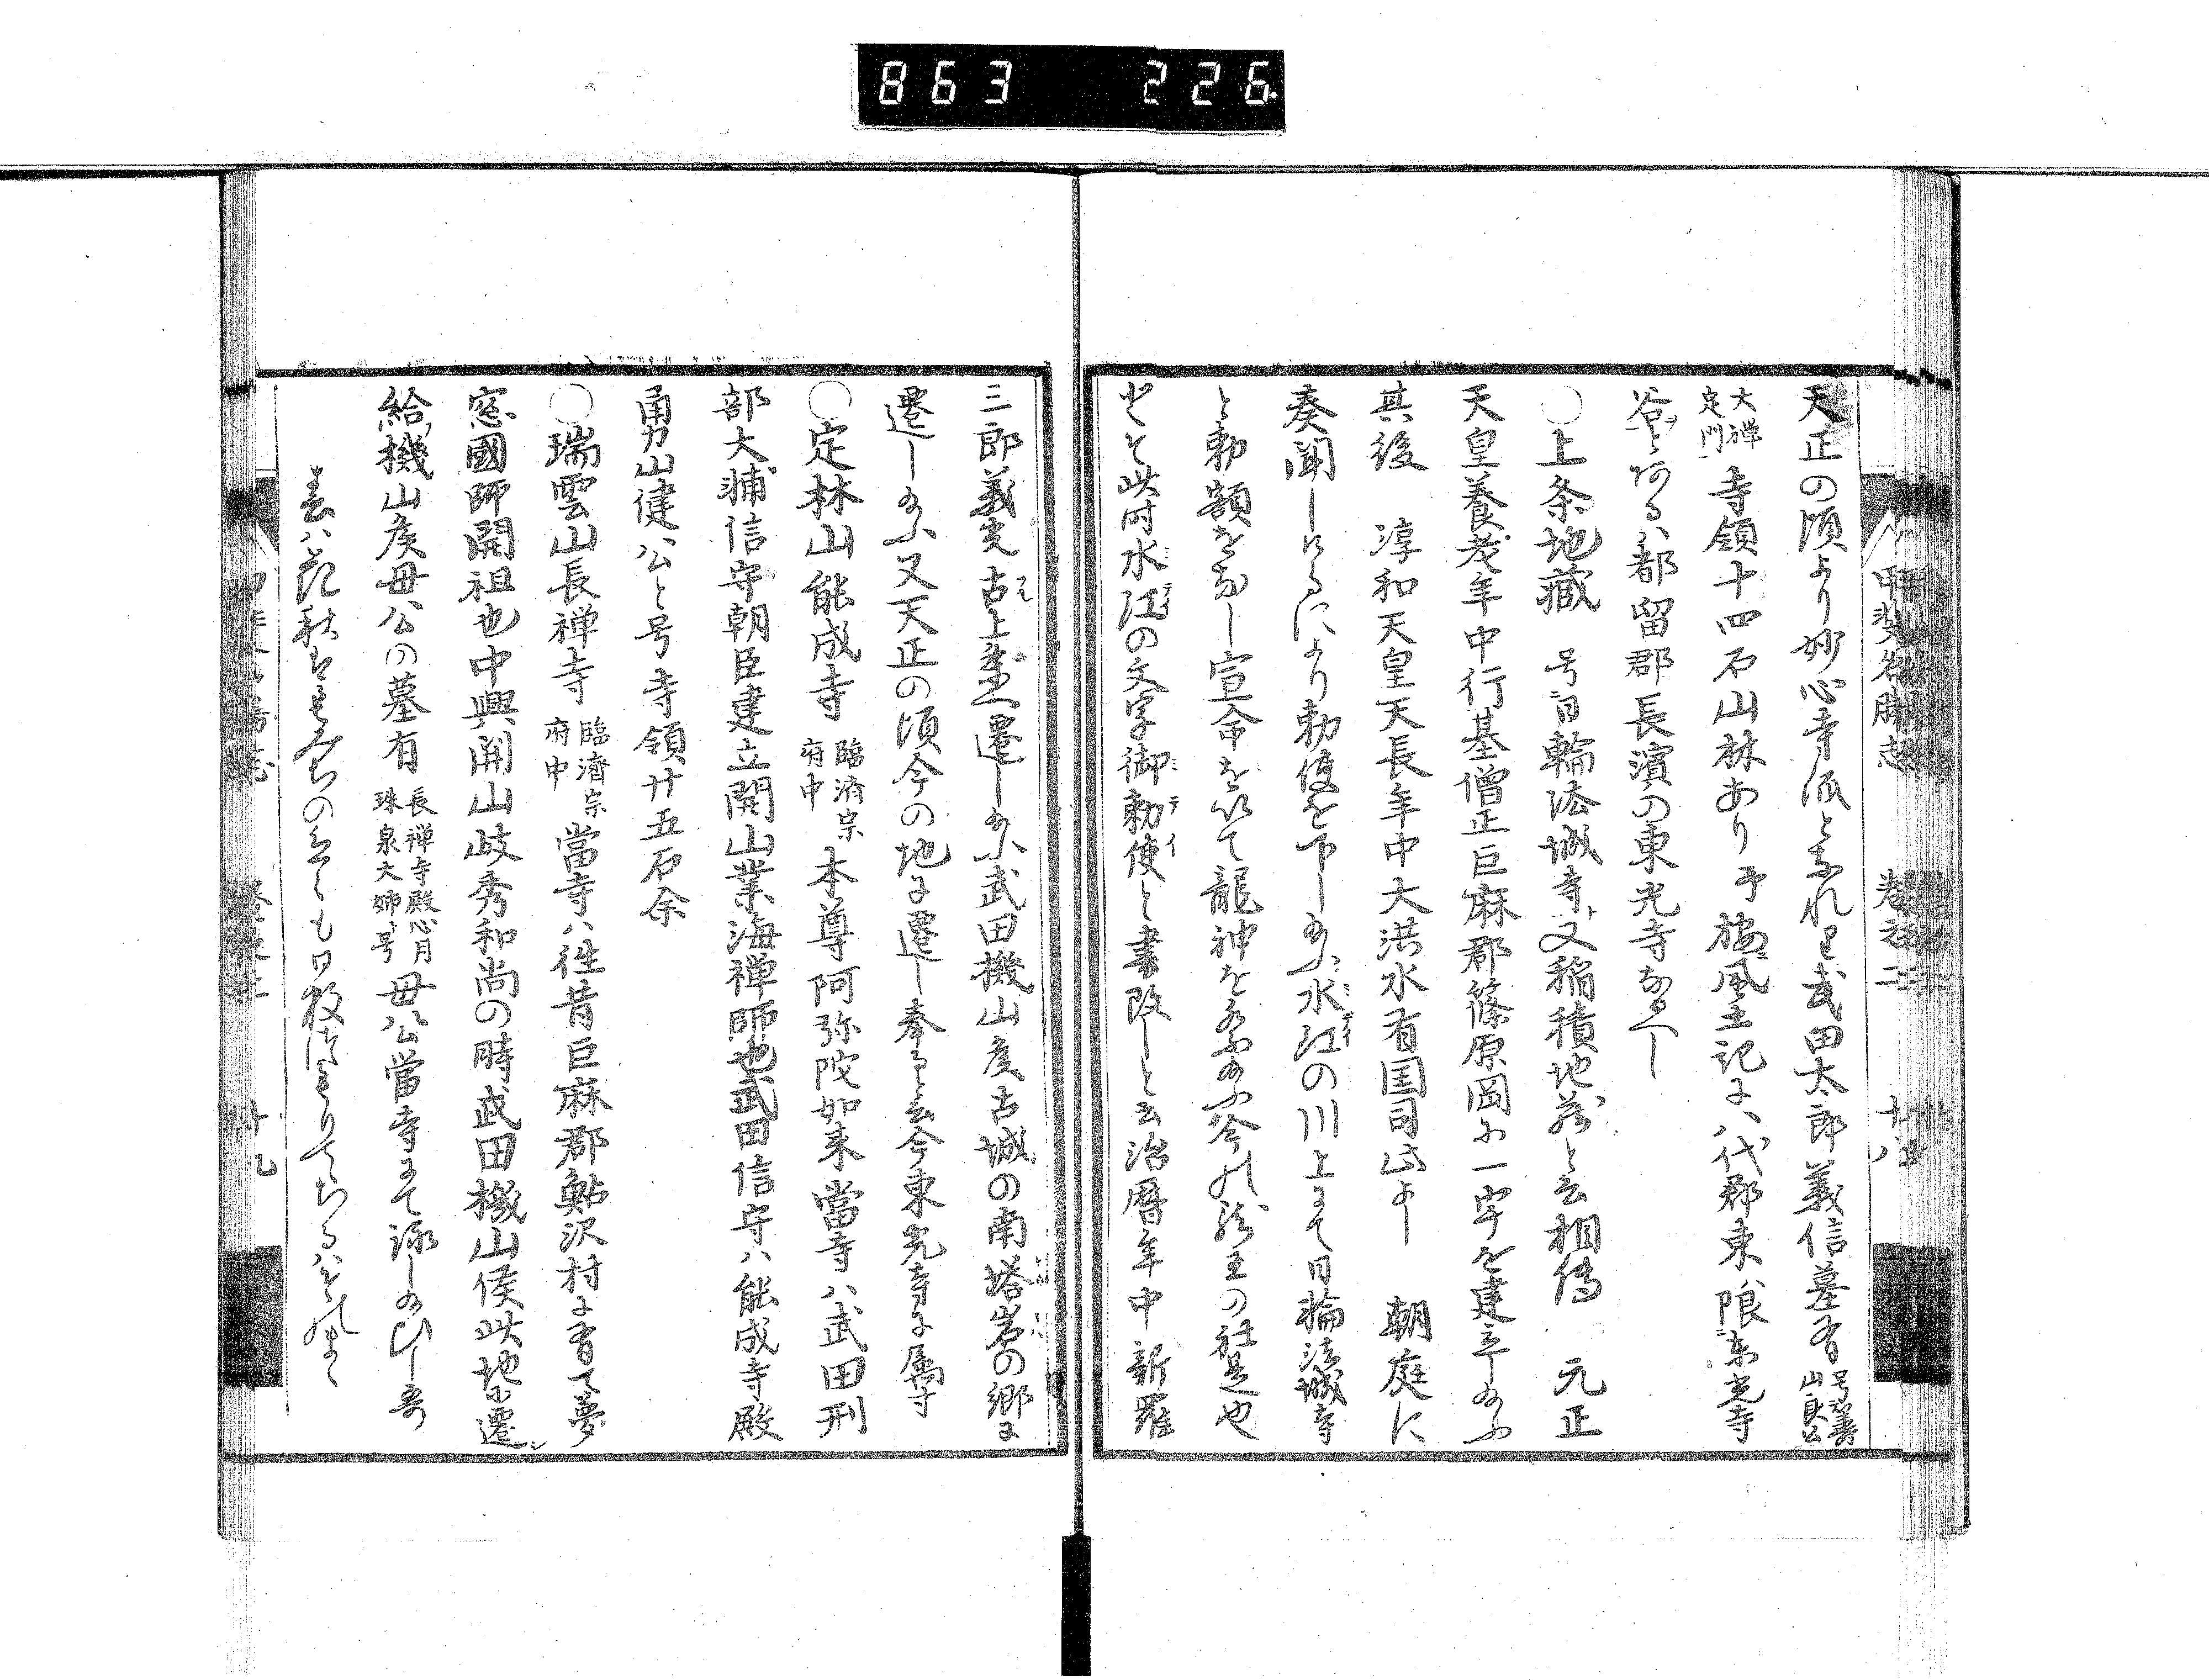 863 226
甲斐名勝志 巻之二 十八
天正の頃より妙心寺派となれり武田太郎義信墓有 号籌山良公
大禅定門 寺領十四石山林あり 予按風土記に八代郡東限東光寺
谷とあるハ都留郡長濱の東光寺なるべし
○上条地藏 号日輪法城寺ト又稲積地蔵と云相傳 元正
天皇養老年中行基僧正巨麻郡篠原岡に一宇を建立し給ふ
其後 淳和天皇天長年中大洪水有国司此よし 朝庭に
奏聞しけるにより勅使を下し給ふ水江の川上にて日輪法城寺
と勅額をなし宣命を以て龍神を祭給ふ今の
の社是也
とて此時水江の文字御勅使と書改しと云治暦年中新羅
三郎義光古上条へ遷し給ふ武田機山矦古城の南塔岩の郷に
遷し給ふ又天正の頃今の地に遷し奉ると云今東光寺に属す
○定林山能成寺 臨済宗府中 本尊阿弥陀如来當寺ハ武田刑
部大輔信守朝臣建立開山業海禅師也武田信守ハ能成寺殿
勇山健公と号寺領廿五石余
○瑞雲山長禅寺 臨濟宗府中 當寺ハ往昔巨麻郡鮎沢村に有て夢
窓國師開祖也中興開山岐秀和尚の時武田機山侯此地に遷シ
給機山矦母公の墓有 長禅寺殿心月珠泉大姉ト号 母公當寺にて詠し給ひし哥
春ハ花秋はもみちの色〳〵も日数つもりてちるハそのまゝ